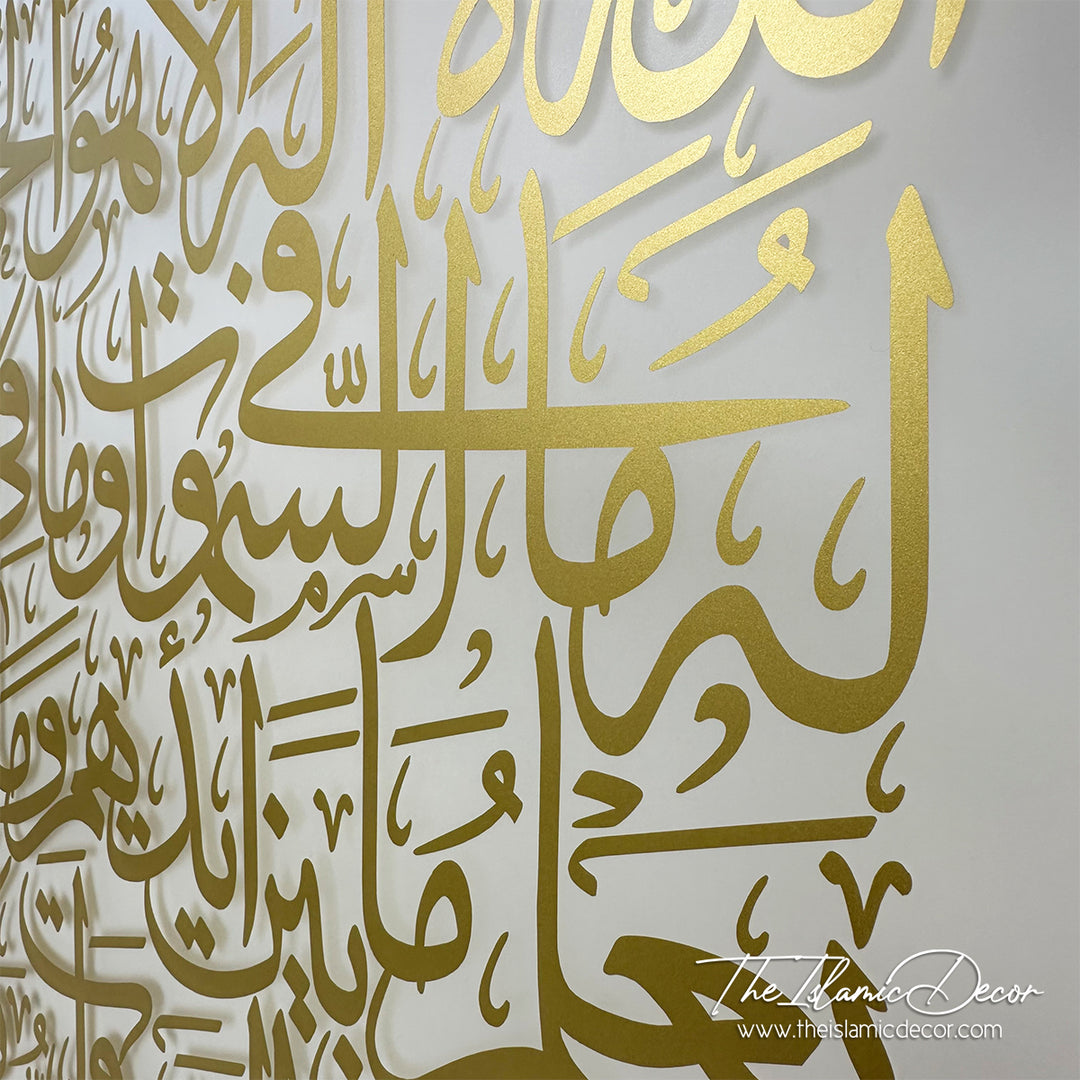 الله لا إله إلا هو
له ما في السموات وما في
يعلم ما بين أيديهم وما
The Islamic Decor
www.theislamicdecor.com